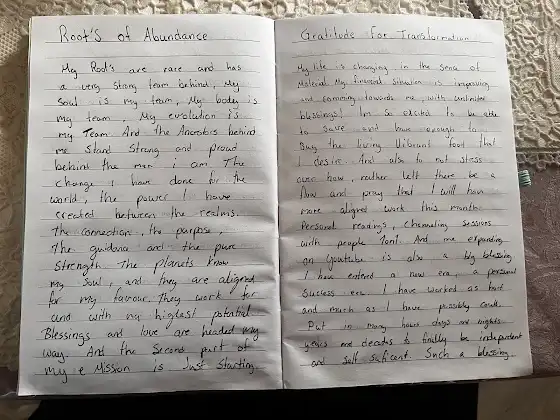 Root's of Abundance
My Root's are rare and has
a very strong team behind, My
soul is my team, My body is
my team, My evolution is
my Team. And the Ancestors behind
me Stand Strong and proud
behind the man i am. The
change I have done for the
world, the power I have
created between the realms.
The connection, the purpose,
The guidance and the pure
Strength. The Planets Know
my Soul, and they are aligned
for my favour. They work for
and with my highest potential
Blessings and love are headed my
way. And the Second part of
my e Mission is Just Starting.
Gratitude For Transformation
My life is changing in the Sense of
Material. My financial Situation is improving
and comming towards me with unlimited
blessings! Im So excited to be able
to Save and have enough to
Buy the living Vibrant food that
I desire. And also to not stress
over how, rather let there be a
flow and pray that I will have
more aligned work this month.
Personal readings, Channeling Sessions
with people 1on1. And me expanding
on Youtube is also a big blessing.
I have entered a new era, a personal
Success era. I have worked as hard
and much as I have possibly could.
Put in many hours days and nights
years and decades to finally be independent
and Self suficent. Such a blessing.